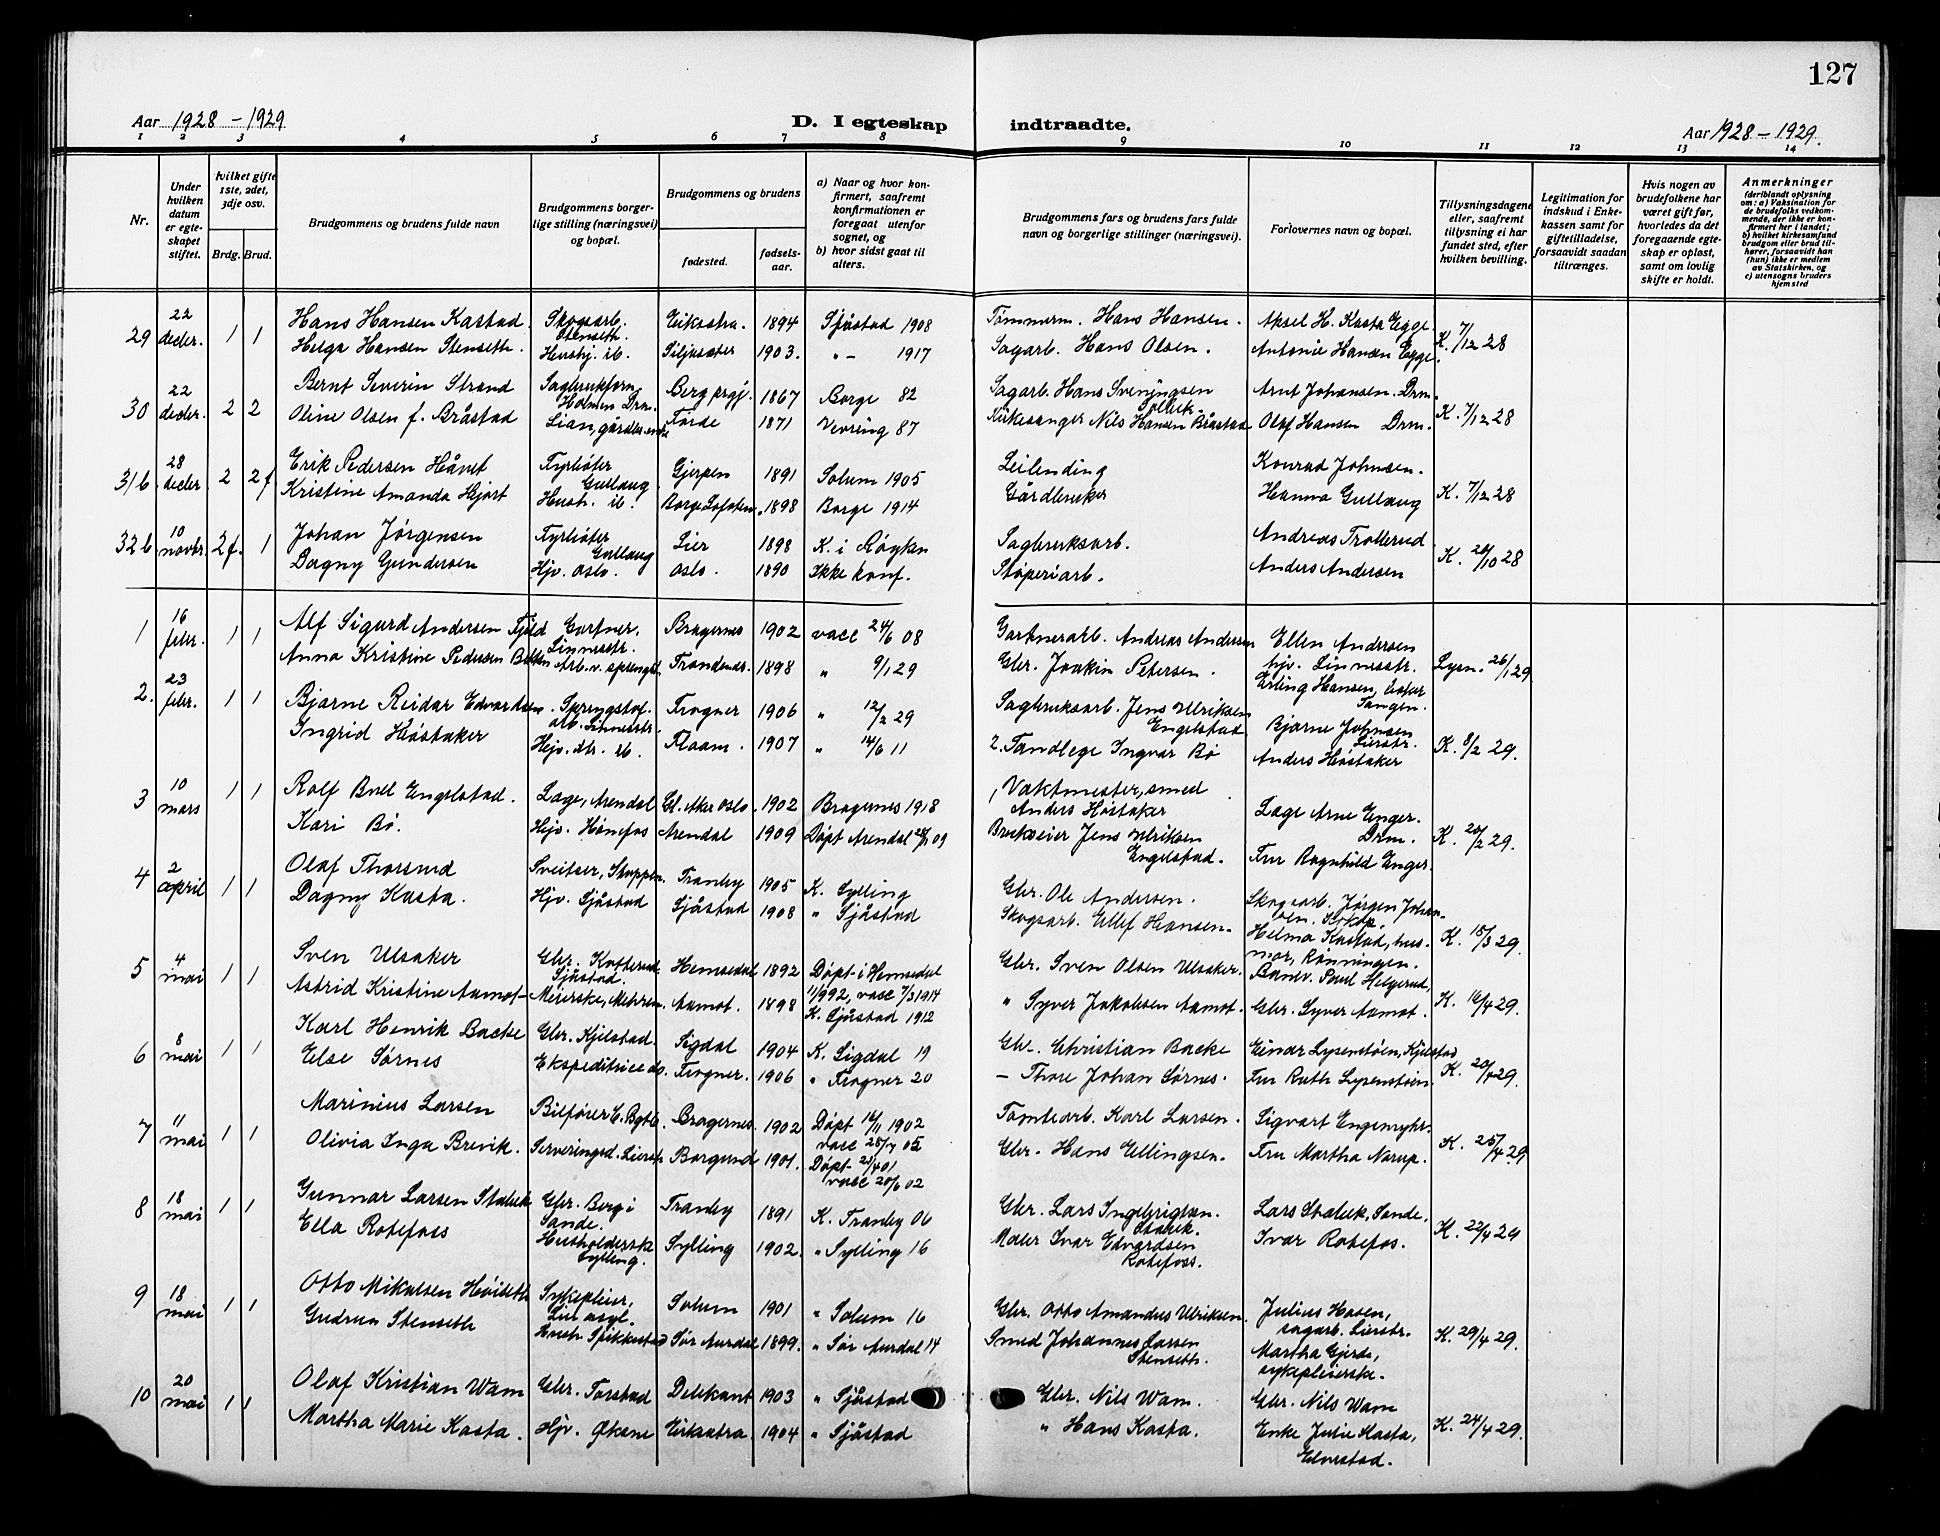 127
Aar 1928 – 1929
D. I egteskap
indtraadte.
Aar 1928 – 1929.
1 2 3 4 5 6 7 8 9 10 11 12 13 14
Nr.
Under hvilken datum er egteskapet stiftet.
hvilket gifte 1ste, 2det, 3dje osv.
Brdg. Brud.
Brudgommens og brudens fulde navn
Brudgommens borgerlige stilling (næringsvei) og bopæl.
Brudgommens og brudens
fødested.
fødselsaar.
a) Naar og hvor konfirmert, saafremt konfirmationen er foregaat utenfor sognet, og
b) hvor sidst gaat til alters.
Brudgommens fars og brudens fars fulde navn og borgerlige stillinger (næringsvei).
Forlovernes navn og bopæl.
Tillysningsdagene eller, saafremt tillysning ei har fundet sted, efter hvilken bevilling.
Legitimation for indskud i Enkekassen samt for giftetilladelse, forsaavidt saadan tiltrænges.
Hvis nogen av brudefolkene har været gift før, hvorledes da det foregaaende egteskap er opløst, samt om lovlig skifte er holdt.
Anmerkninger
(deriblandt oplysning om: a) Vaksination for de brudefolks vedkommende, der ikke er konfirmert her i landet; b) hvilket kirkesamfund brudgom eller brud tilhører, forsaavidt han (hun) ikke er medlem av Statskirken, og c) utensogns bruders hjemsted
29 22 decbr. 1 1 Hans Hansen Kastad. Skogsarb. Stenseth. Eiksetra. 1894 Sjåstad 1908 Tømmerm. Hans Hansen. Aksel H. Kasta Egge. K. 7/12 28
Helga Hansen Stenseth. Hushj. ib. Siljusæter 1903. " – 1917 Sagarb. Hans Olsen. Antonie Hansen Egge.
30 22 decbr. 2 2 Bernt Severin Strand Sagbrukform. Holmen Drm. Berg prgj. 1867 Borge 82 Sagarb. Hans Svenningsen Arnt Johansen. Drm. K. 7/12 28
Oline Olsen f. Bråstad Lian, gårdbr.enke Førde 1871 Vevring 87 Kirkesanger Nils Hansen Bråstad Olaf Hansen Drm.
31 b. 28 decbr 2 2 f Erik Pedersen Håvet Fyrbøter Gullaug Gjerpen 1891 Solum 1905 Leilending Konrad Johnsen. K. 7/12 28
Kristine Amanda Hjort Hustr. ib. Borge Lofoten. 1898 Borge 1914 Gårdbruker Hanna Gullaug
32 b 10 novbr. 2 f. 1 Johan Jørgensen Fyrbøter Gullaug Lier 1898 K. i Røyken Sagbruksarb. Andreas Trollerud K. 20/10 28
Dagny Gundersen Hjv. Oslo. Oslo. 1890 Ikke konf. Støperiarb. Anders Andersen
1 16 febr. 1 1 Alf Sigurd Andersen Fjeld Gartner. Linnesstr. Bragernes 1902 vacc 24/6 08 Gartnerarb. Andreas Andersen Ellen Andersen hjv. Linnesstr. Lysn. 26/1 29
Anna Kristine Pedersen Arb. v. sprengst. Trondenes. 1898 " 9/1 29 Gbr. Joakim Petersen. Erling Hansen, Tangen.
2. 23 febr. 1 1 Bjarne Reidar Edvardsen. Sprengstof. arb. Linnesstr. Frogner 1906 " 12/2 29 Sagbruksarb. Jens Ulriksen Engelstad Bjarne Johnsen Lierstr. K. 8/2 29.
Ingrid Høstaker Hjv. dtr. ib. Flaam. 1907 " 14/6 11 2. Tandlege Ingvar Bø Anders Høstaker
3 10 mars 1 1 Rolf Buel Engelstad. Læge, Arendal Gl. Aker Oslo. 1902 Bragernes 1918 Vaktmester, smed Anders Høstaker Læge Arne Enger. Drm. K. 20/2 29.
Kari Bø. Hjv. Hønefos Arendal 1909 Døpt Arendal 09 Brukseier Jens Ulriksen Engelstad. Fru Ragnhild Enger.
4 2 april 1 1 Olaf Thorsrud Sveitser, Stoppen. Tranby 1905 K. Sylling Gbr. Ole Andersen. Skogsarb. Jørgen Johansen. K. 15/3 29.
Dagny Kasta. Hjv. Sjåstad Sjåstad 1908 " Sjåstad Skogsarb. Ellef Hansen. Helma Kastad, husmor, Rønningen.
5 4 mai 1 1 Sven Ulsaker Gbr. Katterud Sjåstad. Hemsedal 1892 Døpt i Hemsedal 11/9 92, vacc 7/3 1914 Gbr. Sven Olsen Ulsaker. Banev. Paul Helgerud, K. 16/4 29.
Astrid Kristine Aamot Meierske, Mehren. Aamot. 1898 K. Sjåstad 1912 " Syver Jakobsen Aamot. Gbr. Syver Aamot.
6 8 mai 1 1 Karl Henrik Backe Gbr. Kjelstad. Sigdal 1904 K. Sigdal 19 Gbr. Christian Backe Einar Lysenstøen, Kjelstad K. 20/4 29.
Else Sørnes Ekspeditrice do. Frogner. 1906 " Frogner 20 – Thore Johan Sørnes. Fru Ruth Lysenstøen.
7 11 mai 1 1 Marinius Larsen Bilfører Bragernes 1902 Døpt 16/11 1902 vacc 25/7 05 Tomtearb. Karl Larsen. Sigvart Engemyhr. K. 25/4 29
Olivia Inga Brevik. Serveringsd. Lierstr Borgund 1901. Døpt 21/4 01 vacc 20/6 02 Gbr. Hans Ellingsen. Fru Martha Narup.
8 18 mai 1 1 Gunnar Larsen Stabæk Gbr. Berg i Sande. Tranby 1891 K. Tranby 06 Gbr. Lars Ingebrigtsen. Stabæk. Lars Stabæk, Sande. K. 22/4 29
Ella Rotefoss Husholderske Sylling. Sylling 1902. " Sylling 16 Maler Ivar Edvardsen Rotefoss. Ivar Rotefos.
9 18 mai 1 1 Otto Mikalsen Høiseth Sykepleier, Lier asyl. Solum 1901 " Solum 16 Gbr. Otto Amandus Ulriksen. Julius Hasen, sagarb. Lierstr. K. 29/4 29.
Gudrun Stenseth Hustr. Spikkestad Sør Aurdal 1899. " Sør Aurdal 14 Smed Johannes Larsen Stenseth. Martha Gjerde, sykepleierske.
10 20 mai 1 1 Olaf Kristian Wam Gbr. Torstad Delekant 1903 " Sjåstad Gbr. Nils Wam. Gbr. Nils Wam K. 24/4 29.
Martha Marie Kasta. Hjv. Økene Eiksetra. 1904 " Sjåstad " Hans Kasta. Enke Julie Kasta, Elvestad.